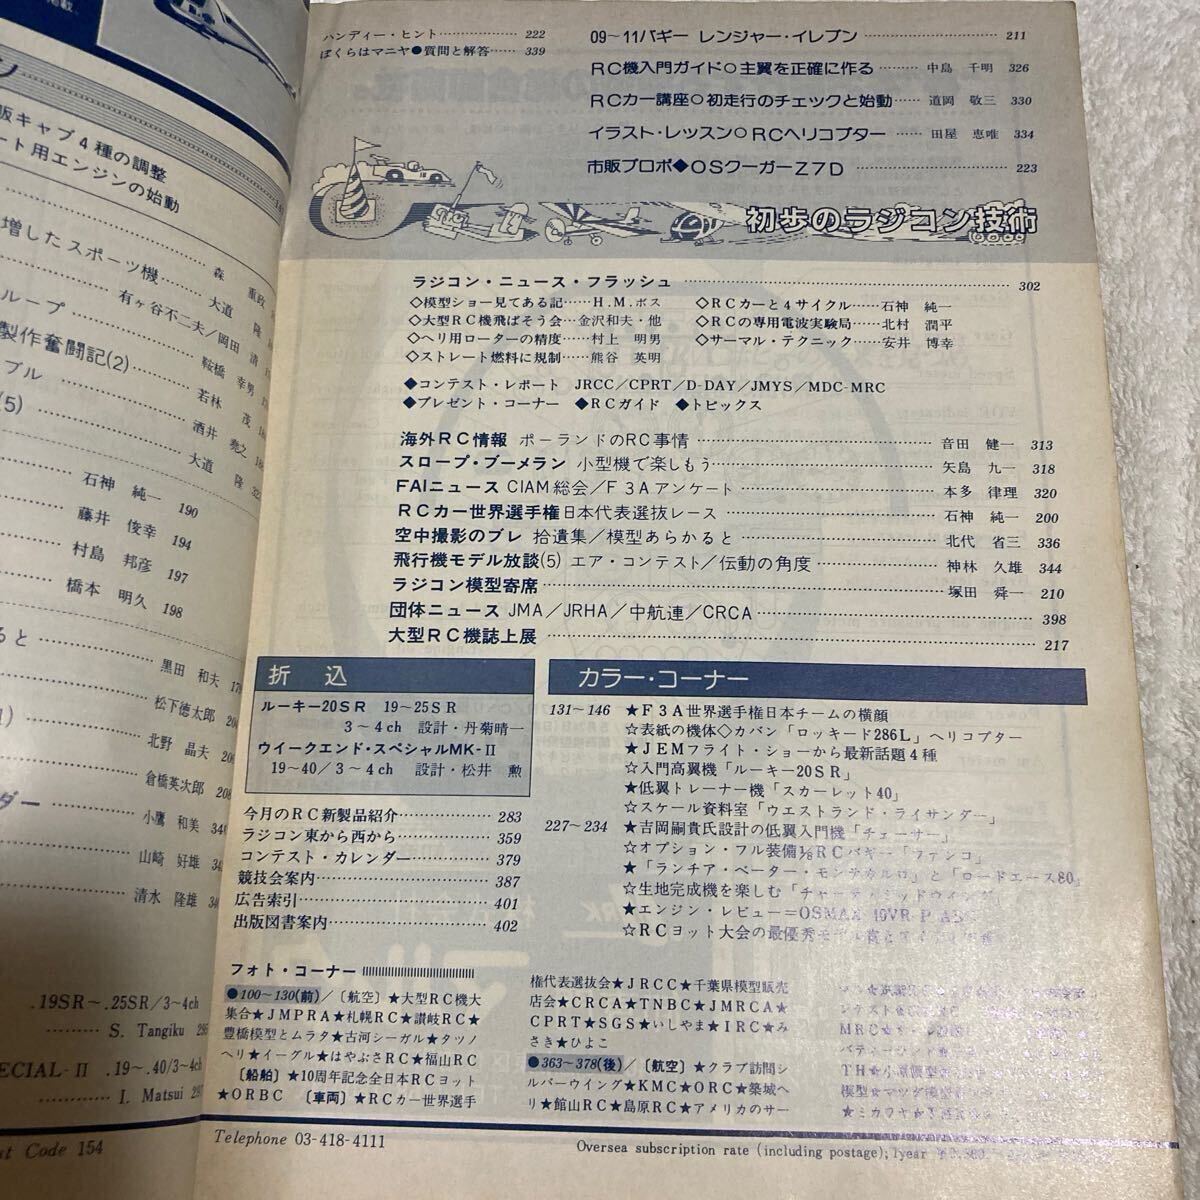 ハンディー・ヒント 222
ぼくらはマニヤ●質問と解答 339
09〜11バギー レンジャー・イレブン 211
RC機入門ガイド○主翼を正確に作る 中島 千明 326
RCカー講座○初走行のチェックと始動 道岡 敬三 330
イラスト・レッスン○RCヘリコプター 田屋 恵唯 334
市販プロポ◆OSクーガーZ7D 223
初歩のラジコン技術
ラジコン・ニュース・フラッシュ 302
◇模型ショー見てある記……H.M.ボス
◇大型RC機飛ばそう会…金沢和夫・他
◇ヘリ用ローターの精度……村上 明男
◇ストレート燃料に規制……熊谷 英明
◇RCカーと4サイクル……石神 純一
◇RCの専用電波実験局……北村 潤平
◇サーマル・テクニック……安井 博幸
◆コンテスト・レポート JRCC/CPRT/D-DAY/JMYS/MDC-MRC
◆プレゼント・コーナー ◆RCガイド ◆トピックス
海外RC情報 ポーランドのRC事情 音田 健一 313
スロープ・ブーメラン 小型機で楽しもう 矢島 九一 318
FAIニュース CIAM総会/F3Aアンケート 本多 律理 320
RCカー世界選手権日本代表選抜レース 石神 純一 200
空中撮影のプレ 拾遺集/模型あらかると 北代 省三 336
飛行機モデル放談(5) エア・コンテスト/伝動の角度 神林 久雄 344
ラジコン模型寄席 塚田 舜一 210
団体ニュース JMA/JRHA/中航連/CRCA 398
大型RC機誌上展 217
折込
ルーキー20SR 19〜25SR
3〜4ch 設計・丹菊晴一
ウイークエンド・スペシャルMK-II
19〜40/3〜4ch 設計・松井 勲
今月のRC新製品紹介 283
ラジコン東から西から 359
コンテスト・カレンダー 379
競技会案内 387
広告索引 401
出版図書案内 402
カラー・コーナー
131〜146 ★F3A世界選手権日本チームの横顔
☆表紙の機体◇カバン「ロッキード286L」ヘリコプター
★JEMフライト・ショーから最新話題4種
☆入門高翼機「ルーキー20SR」
★低翼トレーナー機「スカーレット40」
☆スケール資料室「ウエストランド・ライサンダー」
227〜234 ★吉岡嗣貴氏設計の低翼入門機「チェーサー」
☆オプション・フル装備1/8RCバギー「ファンコ」
★「ランチア・ベーター・モンテカルロ」と「ロードエース80」
☆生地完成機を楽しむ
★エンジン・レビュー=OSMAX
☆RCヨット大会の最優秀モデル賞と
フォト・コーナー
●100〜130(前)/〔航空〕★大型RC機大
集合★JMPRA★札幌RC★讃岐RC★
豊橋模型とムラタ★古河シーガル★タツノ
ヘリ★イーグル★はやぶさRC★福山RC
〔船舶〕★10周年記念全日本RCヨット
★ORBC 〔車両〕★RCカー世界選手
権代表選抜会★JRCC★千葉県模型販売
店会★CRCA★TNBC★JMRCA★
CPRT★SGS★いしやま★IRC★み
さき★ひよこ
●363〜378(後)/〔航空〕★クラブ訪問シ
ルバーウイング★KMC★ORC★築城ヘ
リ★館山RC★島原RC★アメリカのサー
MRC★
TH★
模型★マツダ模型
Telephone 03-418-4111
Oversea subscription rate (including postage); 1year
ン
販キャブ4種の調整
ート用エンジンの始動
森 重政
増したスポーツ機 大道 隆
有ヶ谷不二夫/岡田 清
ループ 鞍橋 幸男
製作奮闘記(2) 若林 茂
ブル 酒井 堯之
(5) 大道 隆
石神 純一 190
藤井 俊幸 194
村島 邦彦 197
橋本 明久 198
ると 黒田 和夫
松下徳太郎
1) 北野 晶夫
倉橋英次郎
ダー 小鷹 和美
山崎 好雄
清水 隆雄
.19SR〜.25SR/3〜4ch
S. Tangiku
ECIAL-II .19〜.40/3〜4ch
I. Matsui
Code 154